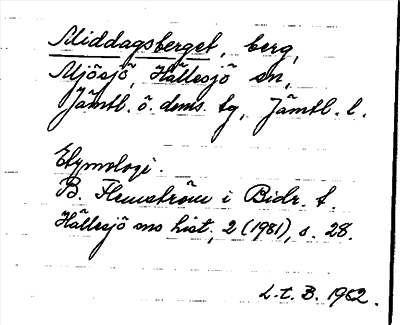 Middagsberget, berg,
Mjösjö, Hällesjö sn,
Jämtl. ö. doms. tg, Jämtl. l.
Etymologi.
B. Flemström i Bidr. t.
Hällesjö sns hist., 2 (1981), s. 28.
L.t. B. 1982.